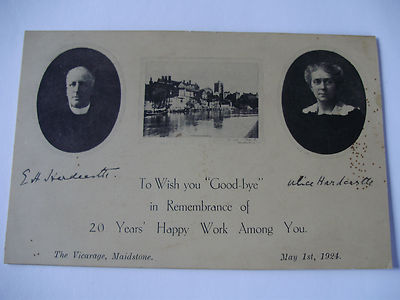 E H Hardcastle.
Alice Hardcastle
To Wish you "Good-bye"
in Remembrance of
20 Years' Happy Work Among You.
The Vicarage, Maidstone.
May 1st, 1924.